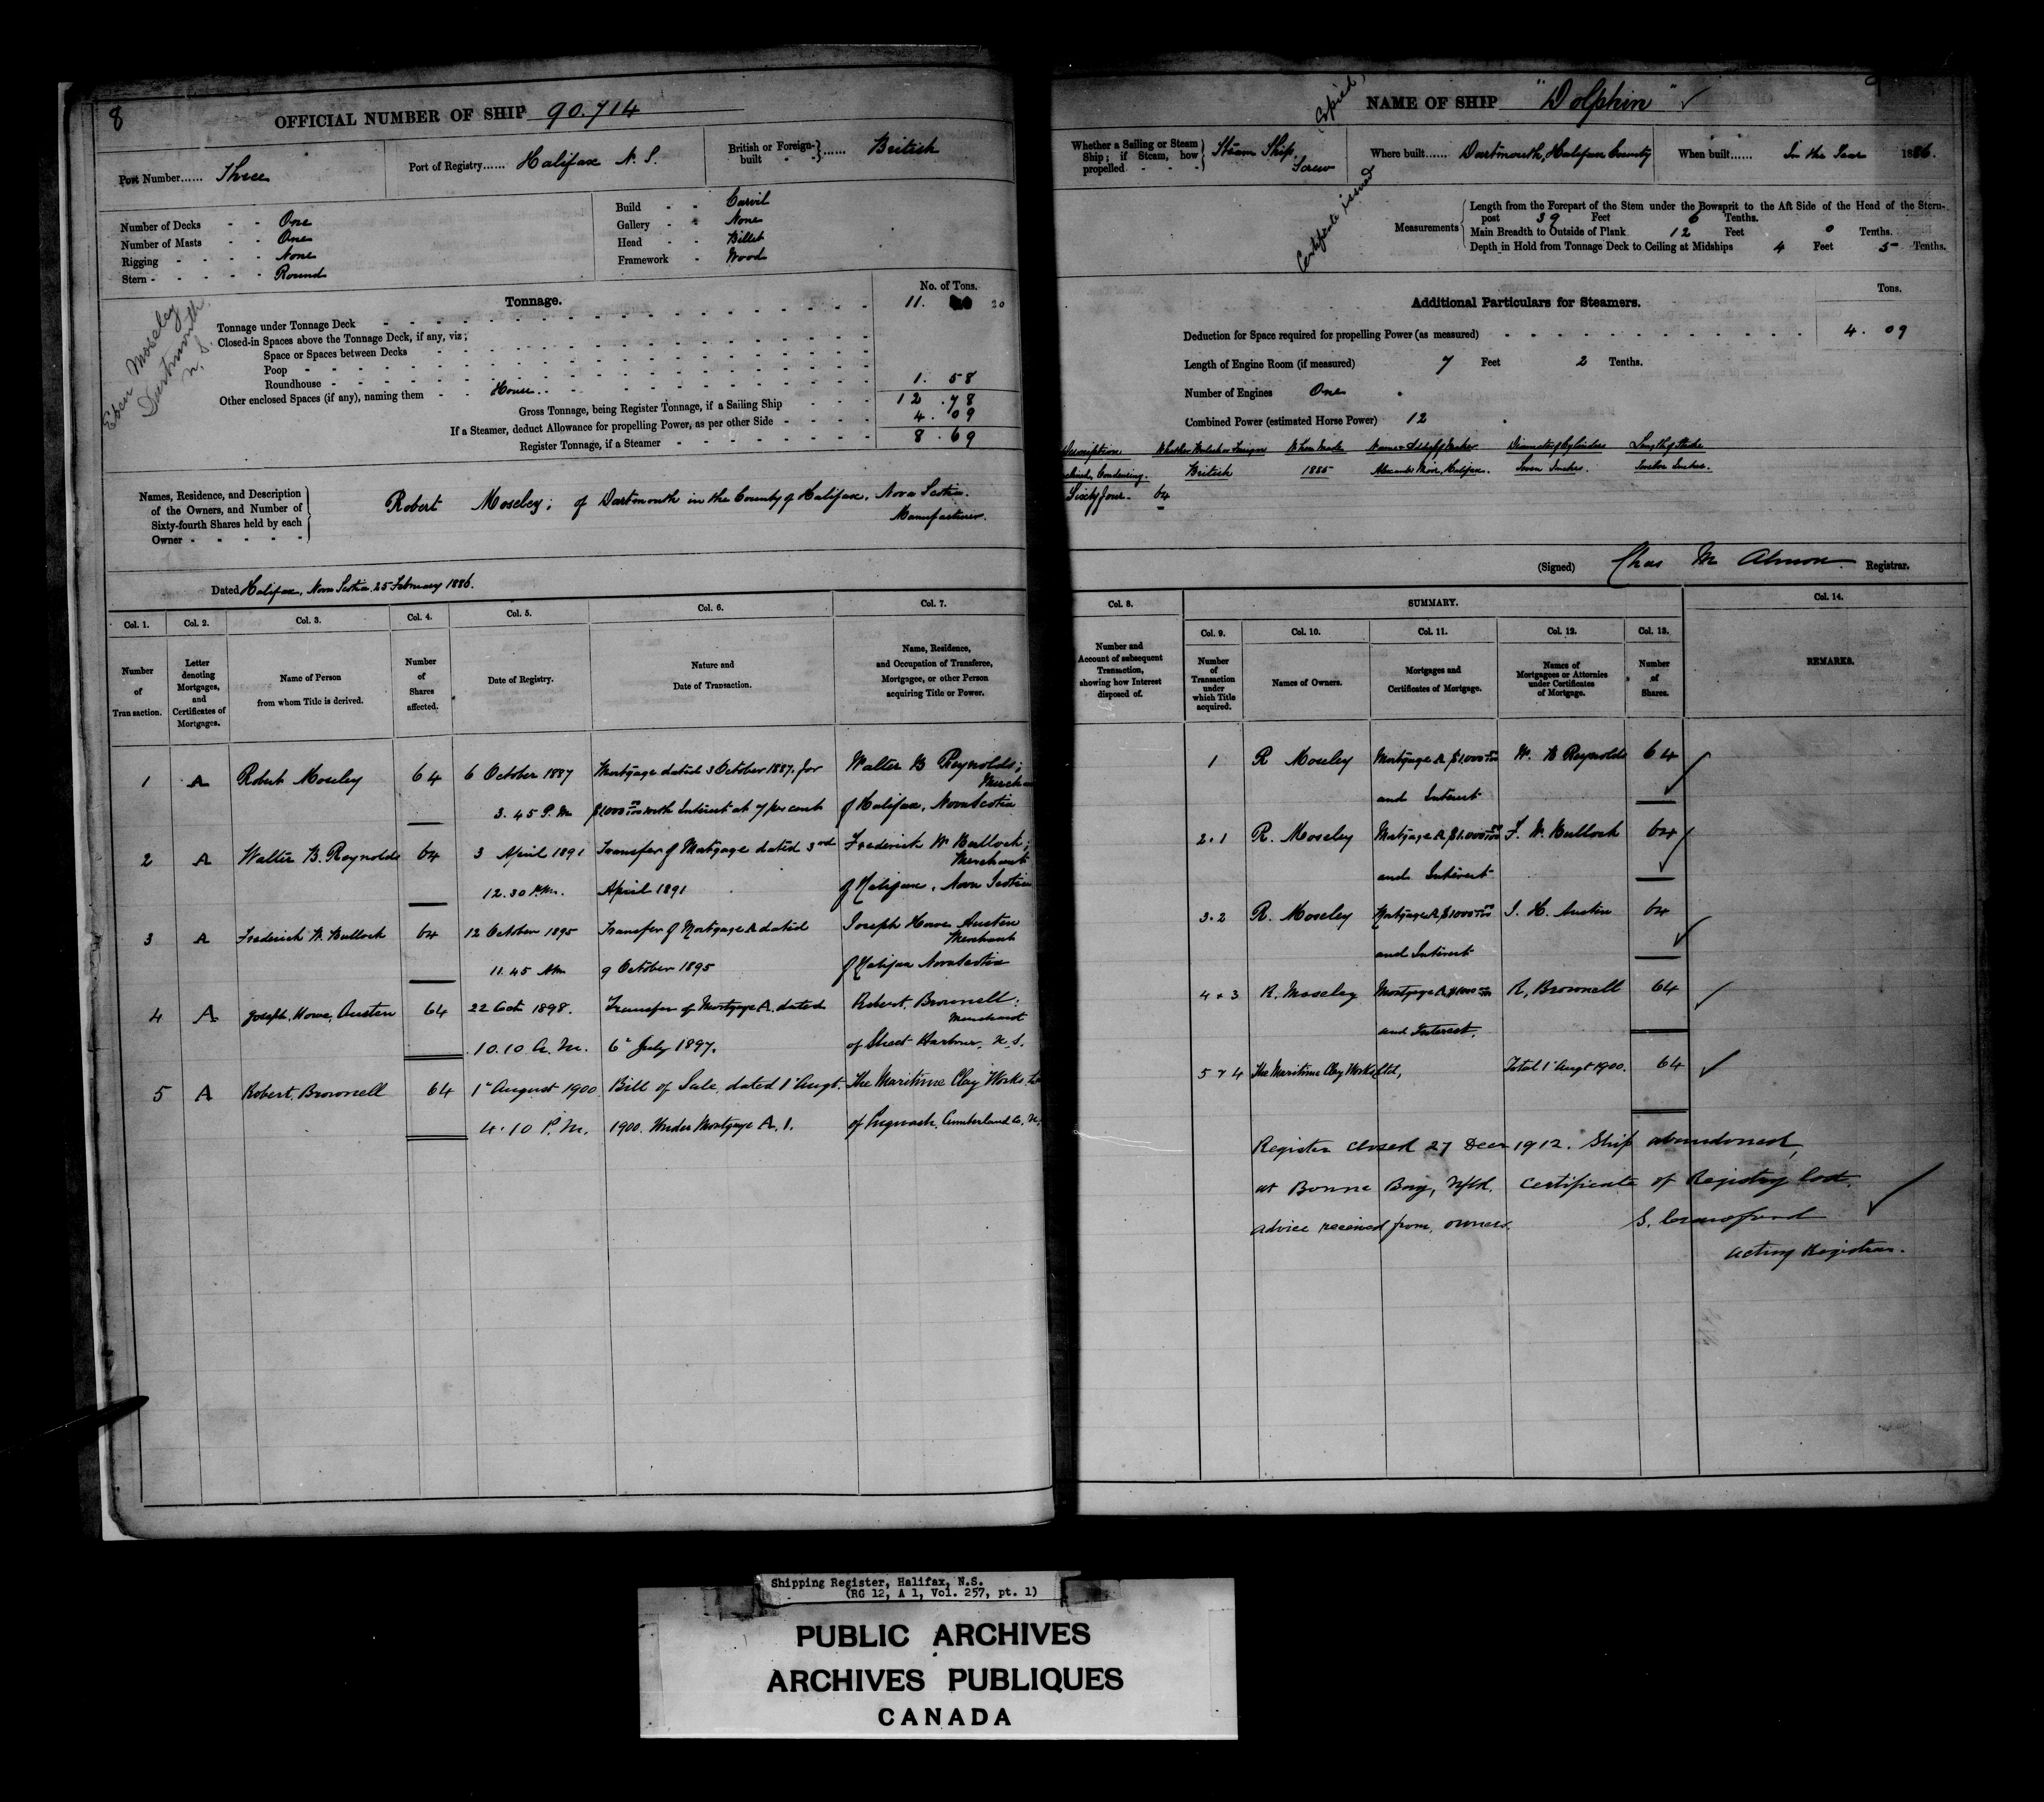 8
OFFICIAL NUMBER OF SHIP 90.714
Port Number...... Three
Port of Registry...... Halifax N. S.
British or Foreign-built - - }...... British
Number of Decks - - One
Number of Masts - - One
Rigging - - - - None
Stern - - - - - Round
Build - - Carvil
Gallery - - None
Head - - Billet
Framework - Wood
Eben Moseley
Dartmouth
N. S.
Tonnage.
No. of Tons.
Tonnage under Tonnage Deck 11. 20
Closed-in Spaces above the Tonnage Deck, if any, viz;
Space or Spaces between Decks
Poop
Roundhouse
Other enclosed Spaces (if any), naming them - - House 1. 58
Gross Tonnage, being Register Tonnage, if a Sailing Ship 12 .78
If a Steamer, deduct Allowance for propelling Power, as per other Side 4. 09
Register Tonnage, if a Steamer 8. 69
Names, Residence, and Description
of the Owners, and Number of
Sixty-fourth Shares held by each
Owner - - - - -
Robert Moseley; of Dartmouth in the County of Halifax, Nova Scotia.
Manufacturer.
Dated Halifax, Nova Scotia 25 February 1886.
Col. 1. Col. 2. Col. 3. Col. 4. Col. 5. Col. 6. Col. 7.
Number of Transaction.
Letter denoting Mortgages, and Certificates of Mortgages.
Name of Person from whom Title is derived.
Number of Shares affected.
Date of Registry.
Nature and Date of Transaction.
Name, Residence, and Occupation of Transferee, Mortgagee, or other Person acquiring Title or Power.
1 A Robert Moseley 64 6 October 1887 Mortgage dated 3 October 1887, for Walter B Reynolds;
3. 45 P. M $1000 00/100 with Interest at 7 per cent of Halifax, Nova Scotia
2 A Walter B. Reynolds 64 3 April 1891 Transfer of Mortgage dated 3rd Frederick W Bullock;
Merchant
12.30 P.M. April 1891 of Halifax, Nova Scotia
3 A Frederick W. Bullock 64 12 October 1895 Transfer of Mortgage A dated Joseph Howe Austen
Merchant
11.45 AM 9 October 1895 of Halifax Nova Scotia
4 A Joseph, Howe, Austen 64 22 Oct 1898. Transfer of Mortgage A. dated Robert Brownell:
Merchant
10.10 A. M. 6" July 1897. of Sheet Harbour, N. S.
5 A Robert Brownell 64 1" August 1900 Bill of Sale dated 1" Augt. The Maritime Clay Works
4.10 P. M. 1900. Under Mortgage A. 1. of Pugwash, Cumberland Co,
NAME OF SHIP "Dolphin"
Copied,
Certificate issued
Whether a Sailing or Steam
Ship; if Steam, how
propelled - - -
Steam Ship.
Screw
Where built...... Dartmouth, Halifax County
When built...... In the Year 1886.
Measurements
Length from the Forepart of the Stem under the Bowsprit to the Aft Side of the Head of the Stern-
post 39 Feet 6 Tenths.
Main Breadth to Outside of Plank 12 Feet 0 Tenths.
Depth in Hold from Tonnage Deck to Ceiling at Midships 4 Feet 5 Tenths.
Additional Particulars for Steamers.
Tons.
Deduction for Space required for propelling Power (as measured) 4. 09
Length of Engine Room (if measured) 7 Feet 2 Tenths.
Number of Engines One
Combined Power (estimated Horse Power) 12
Description Whether British or Foreign When Made Name & Address of Maker Diameter of Cylinders Length of Stroke
Condensing. British 1885 Halifax. Seven Inches. Twelve Inches.
Sixty four - 64
(Signed) Chas M Almon Registrar.
Col. 8. SUMMARY. Col. 14.
Col. 9. Col. 10. Col. 11. Col. 12. Col. 13.
Number and Account of subsequent Transaction, showing how Interest disposed of.
Number of Transaction under which Title acquired.
Names of Owners.
Mortgages and Certificates of Mortgage.
Names of Mortgagees or Attornies under Certificates of Mortgage.
Number of Shares.
REMARKS.
1 R Moseley Mortgage A $1000 00/100 W. B Reynolds 64
and Interest
2.1 R. Moseley Mortgage A $1.000 00/100 F. W. Bullock 64
and Interest
3.2 R. Moseley Mortgage A $1000 00/100 J. H. Austen 64
and Interest
4 & 3 R. Moseley Mortgage A. $1000 R, Brownell 64
and Interest.
5 & 4 The Maritime Clay Works Ltd, Total 1" Augt 1900. 64
Register closed 27 Decr 1912. Ship abandoned,
at Bonne Bay, Nfld. Certificate of Registry lost.
Advice received from, owners. S. Crawford
Acting Registrar.
Shipping Register, Halifax, N.S.
(RG 12, A 1, Vol. 257, pt. 1)
PUBLIC ARCHIVES
ARCHIVES PUBLIQUES
CANADA